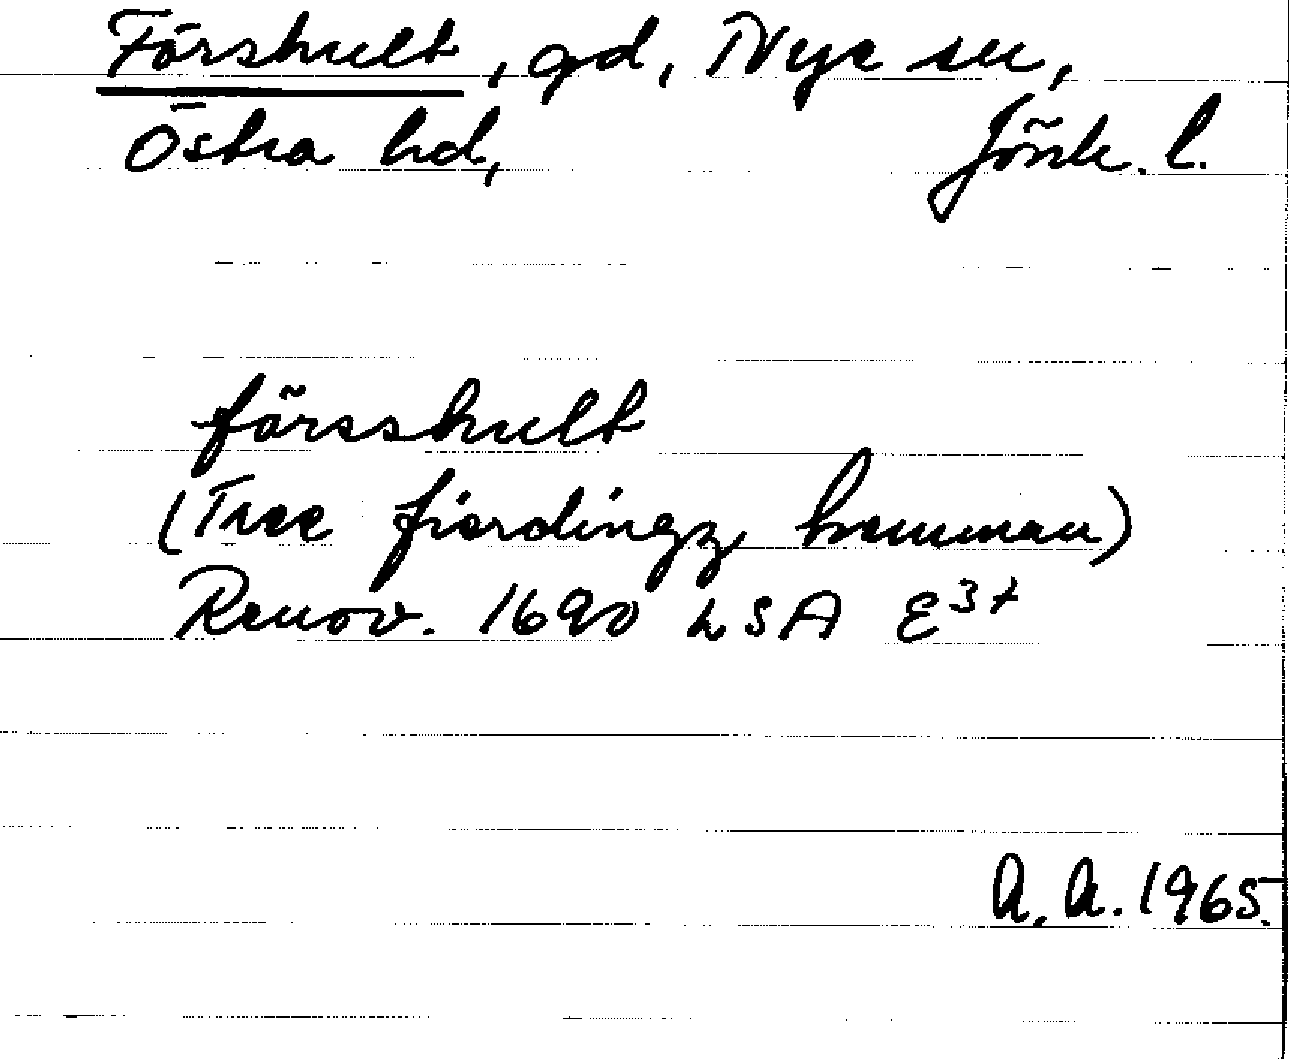 Förshult, gd, Nye sn,
Östra hd, Jönk. l.
försshult
(Tree fierdingz hemman)
Renov. 1690 LSA E³⁺
A. A. 1965.